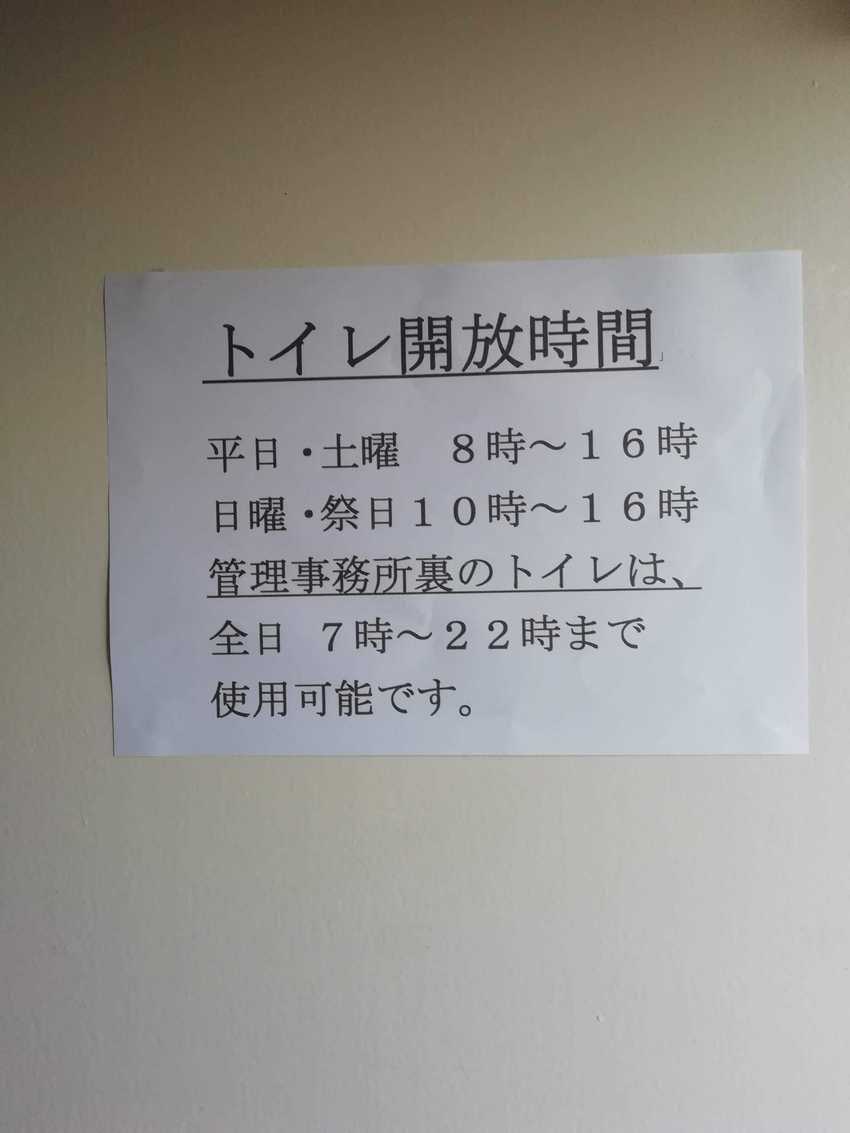 トイレ開放時間
平日・土曜　８時～１６時
日曜・祭日１０時～１６時
管理事務所裏のトイレは、
全日　７時～２２時まで
使用可能です。